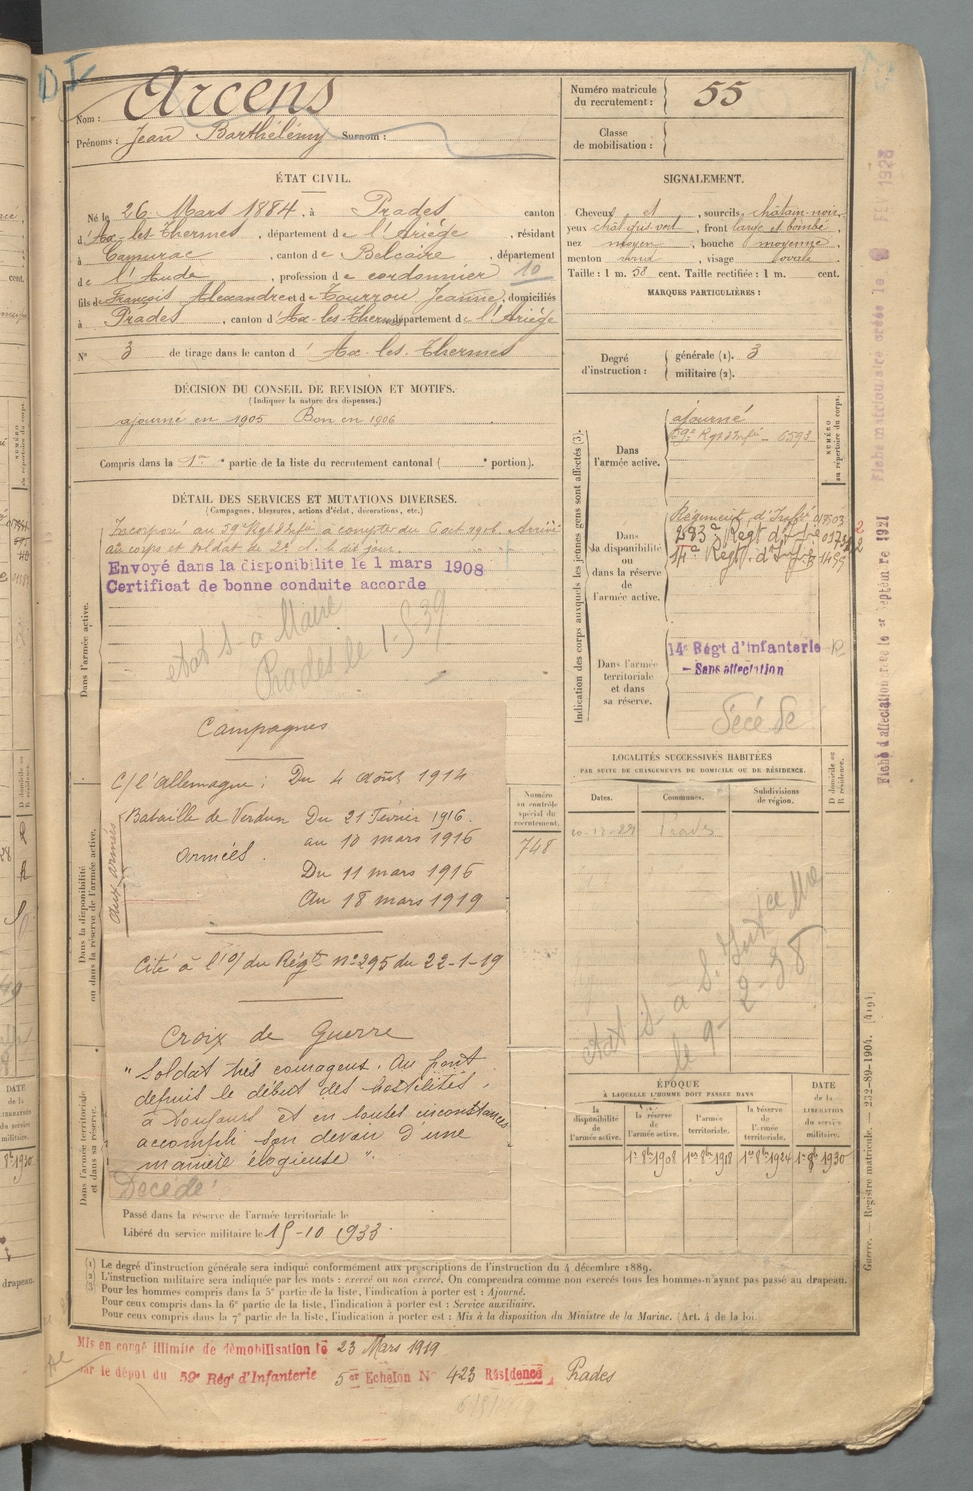 Nom : Arcens
Prénoms : Jean Barthélémy Surnom :
ÉTAT CIVIL.
Né le 26 Mars 1884, à Prades canton
d'Ax-les-Thermes, département de l'Ariége, résidant
à Camurac, canton de Belcaire, département
de l'Aude, profession de cordonnier 10
fils de François Alexandre et de Tourrou Jeanne, domiciliés
à Prades, canton d'Ax-les-Thermes département de l'Ariége
N° 3 de tirage dans le canton d' Ax-les-Thermes
DÉCISION DU CONSEIL DE REVISION ET MOTIFS.
(Indiquer la nature des dispenses.)
ajourné en 1905 Bon en 1906
Compris dans la 1re partie de la liste du recrutement cantonal ( e portion).
DÉTAIL DES SERVICES ET MUTATIONS DIVERSES.
(Campagnes, blessures, actions d'éclat, décorations, etc.)
Incorporé au 59e Regt d'Infie à compter du 6 oct 1906. Arrivé
au corps et soldat de 2e cl. le dit jour.
Envoyé dans la disponibilite le 1 mars 1908
Certificat de bonne conduite accorde
etat S- à Maire
Prades le 1-5-39
Dans l'armée active.
Campagnes
C/ l'Allemagne : Du 4 août 1914
Bataille de Verdun Du 21 Février 1916.
au 10 mars 1916
Armées. Du 11 mars 1916
Au 18 mars 1919
aux armées
Cité à l'O/ du Régt n° 295 du 22-1-19
Croix de Guerre
"Soldat très courageux. Au front
depuis le début des hostilités,
a toujours et en toutes circonstances
accompli son devoir d'une
manière élogieuse".
Décédé
Dans la disponibilité
ou dans la réserve de l'armée active.
Dans l'armée territoriale
et dans sa réserve.
Passé dans la réserve de l'armée territoriale le
Libéré du service militaire le 15-10 1933
Numéro
au contrôle
spécial du
recrutement.
748
Numéro matricule
du recrutement : 55
Classe
de mobilisation :
SIGNALEMENT.
Cheveux et, sourcils châtain-noir,
yeux chât gris-vert, front large et bombé,
nez moyen, bouche moyenne,
menton rond, visage ovale.
Taille : 1 m. 58 cent. Taille rectifiée : 1 m. cent.
MARQUES PARTICULIÈRES :
Degré
d'instruction :
générale (1). 3
militaire (2).
Indication des corps auxquels les jeunes gens sont affectés (3).
NUMÉRO
au répertoire du corps.
Dans
l'armée active.
ajourné
59e Regt d'Infie - 6593
Dans
la disponibilité
ou
dans la réserve
de
l'armée active.
Régiment d'Infie
283e Regt d'Inf
14e Regt. d'Inf
Dans l'armée
territoriale
et dans
sa réserve.
14e Régt d'Infanterie
- Sans affectation
Décédé
LOCALITÉS SUCCESSIVES HABITÉES
PAR SUITE DE CHANGEMENTS DE DOMICILE OU DE RÉSIDENCE.
D domicile ou
R résidence.
Dates. Communes. Subdivisions
de région.
Prades
etat S- à S. Intce Mre
le 9-2-38
ÉPOQUE
À LAQUELLE L'HOMME DOIT PASSER DANS
la
disponibilité
de
l'armée active.
la réserve
de
l'armée active.
l'armée
territoriale.
la réserve
de
l'armée
territoriale.
DATE
de la
LIBÉRATION
du service
militaire.
1er 8bre 1908 1er 8bre 1918 1er 8bre 1924 1er 8bre 1930
(1) Le degré d'instruction générale sera indiqué conformément aux prescriptions de l'instruction du 4 décembre 1889.
(2) L'instruction militaire sera indiquée par les mots : exercé ou non exercé. On comprendra comme non exercés tous les hommes n'ayant pas passé au drapeau.
(3) Pour les hommes compris dans la 5e partie de la liste, l'indication à porter est : Ajourné.
Pour ceux compris dans la 6e partie de la liste, l'indication à porter est : Service auxiliaire.
Pour ceux compris dans la 7e partie de la liste, l'indication à porter est : Mis à la disposition du Ministre de la Marine. (Art. 4 de la loi.
Mis en congé illimité de démobilisation le 23 Mars 1919
par le dépôt du 59e Rég' d'Infanterie 5er Echelon N° 423 Résidence Prades
Guerre. — Registre matricule. — 232-89-1904. [4194]